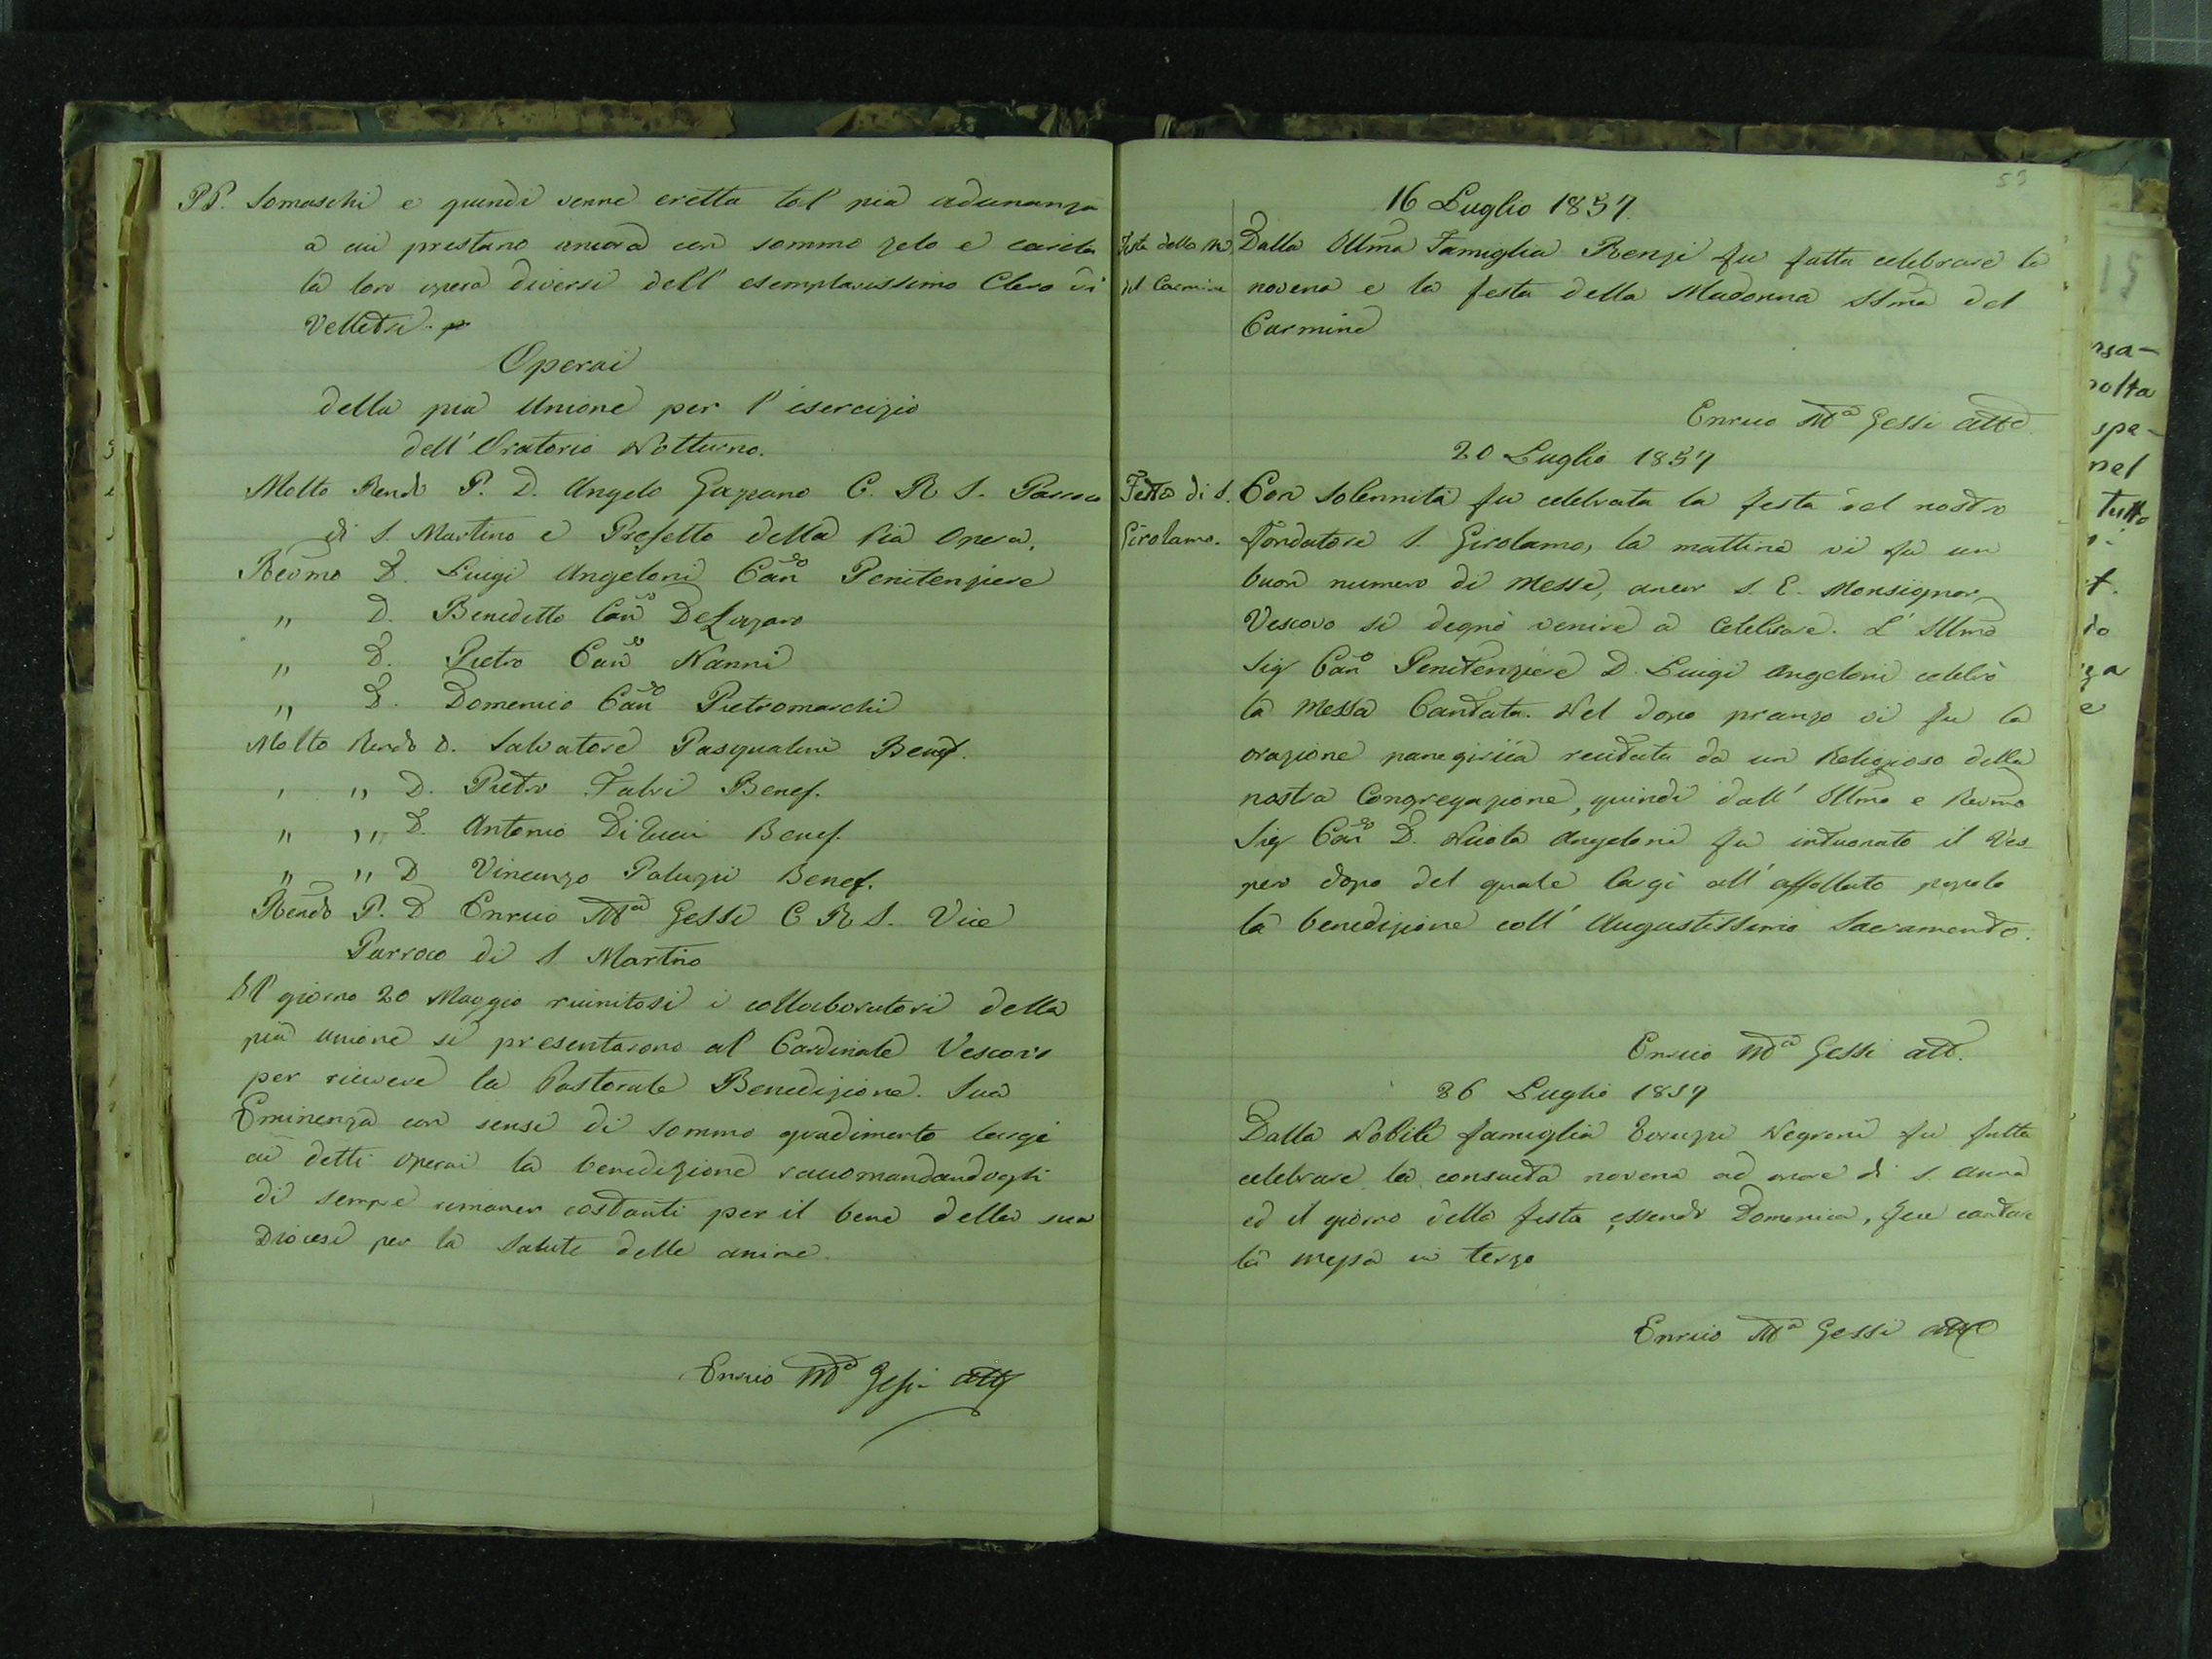 PP. Somaschi e quindi venne eretta tal pia adunanza
a cui prestano ancora con sommo zelo e carità
la loro opera diversi dell' esemplarissimo Clero di
Velletri.
Operai
della pia Unione per l'esercizio
dell'Oratorio Notturno.
Molto Rendo P. D. Angelo Gazzano C. R. S. Parroco
di S. Martino e Prefetto della Pia Opera.
Revmo D. Luigi Angeloni Canco Penitenziere
" D. Benedetto Canco De Lazaro
" D. Pietro Canco Nanni
" D. Domenico Canco Pietromarchi
Molto Rendo D. Salvatore Pasqualini Benef.
" " D. Pietro Fabri Benef.
" " D. Antonio Di Lucci Benef.
" " D Vincenzo Paluzzi Benef.
Rendo P. D Enrico Ma Gessi C R S. Vice
Parroco di S Martino
Il giorno 20 Maggio riunitosi i collaboratori della
pia unione si presentarono al Cardinale Vescovo
per ricevere la Pastorale Benedizione. Sua
Eminenza con sensi di sommo gradimento largì
ai detti operai la benedizione raccomandandogli
di sempre rimaner costanti per il bene della sua
Diocesi per la salute delle anime.
Enrico Ma Gessi att
53
16 Luglio 1857.
Festa della M.
del Carmine
Dalla Illma Famiglia Renzi fu fatta celebrare la
novena e la festa della Madonna SSma del
Carmine
Enrico Ma Gessi atto
20 Luglio 1857
Festa di S.
Girolamo.
Con Solennità fu celebrata la festa del nostro
Fondatore S. Girolamo, la mattina vi fu un
buon numero di Messe, ancor S. E. Monsignor
Vescovo si degnò venire a Celebrare. L' Illmo
Sig Canco Penitenziere D. Luigi Angeloni celebrò
la Messa Cantata. Nel dopo pranzo vi fu la
orazione panegirica recitata da un Religioso della
nostra Congregazione, quindi dall' Illmo e Revmo
Sig Canco D. Nicola Angeloni fu intuonato il Ves-
pero dopo del quale largì all' affollato popolo
la benedizione coll' Augustissimo Sacramento.
Enrico Ma Gessi att.
26 Luglio 1857
Dalla Nobile famiglia Negroni fu fatta
celebrare la consueta novena ad onore di S. Anna
ed il giorno della festa essendo Domenica, fece cantare
la messa in terzo
Enrico Ma Gessi atto
15
nsa-
nolta
spe-
nel
tutto